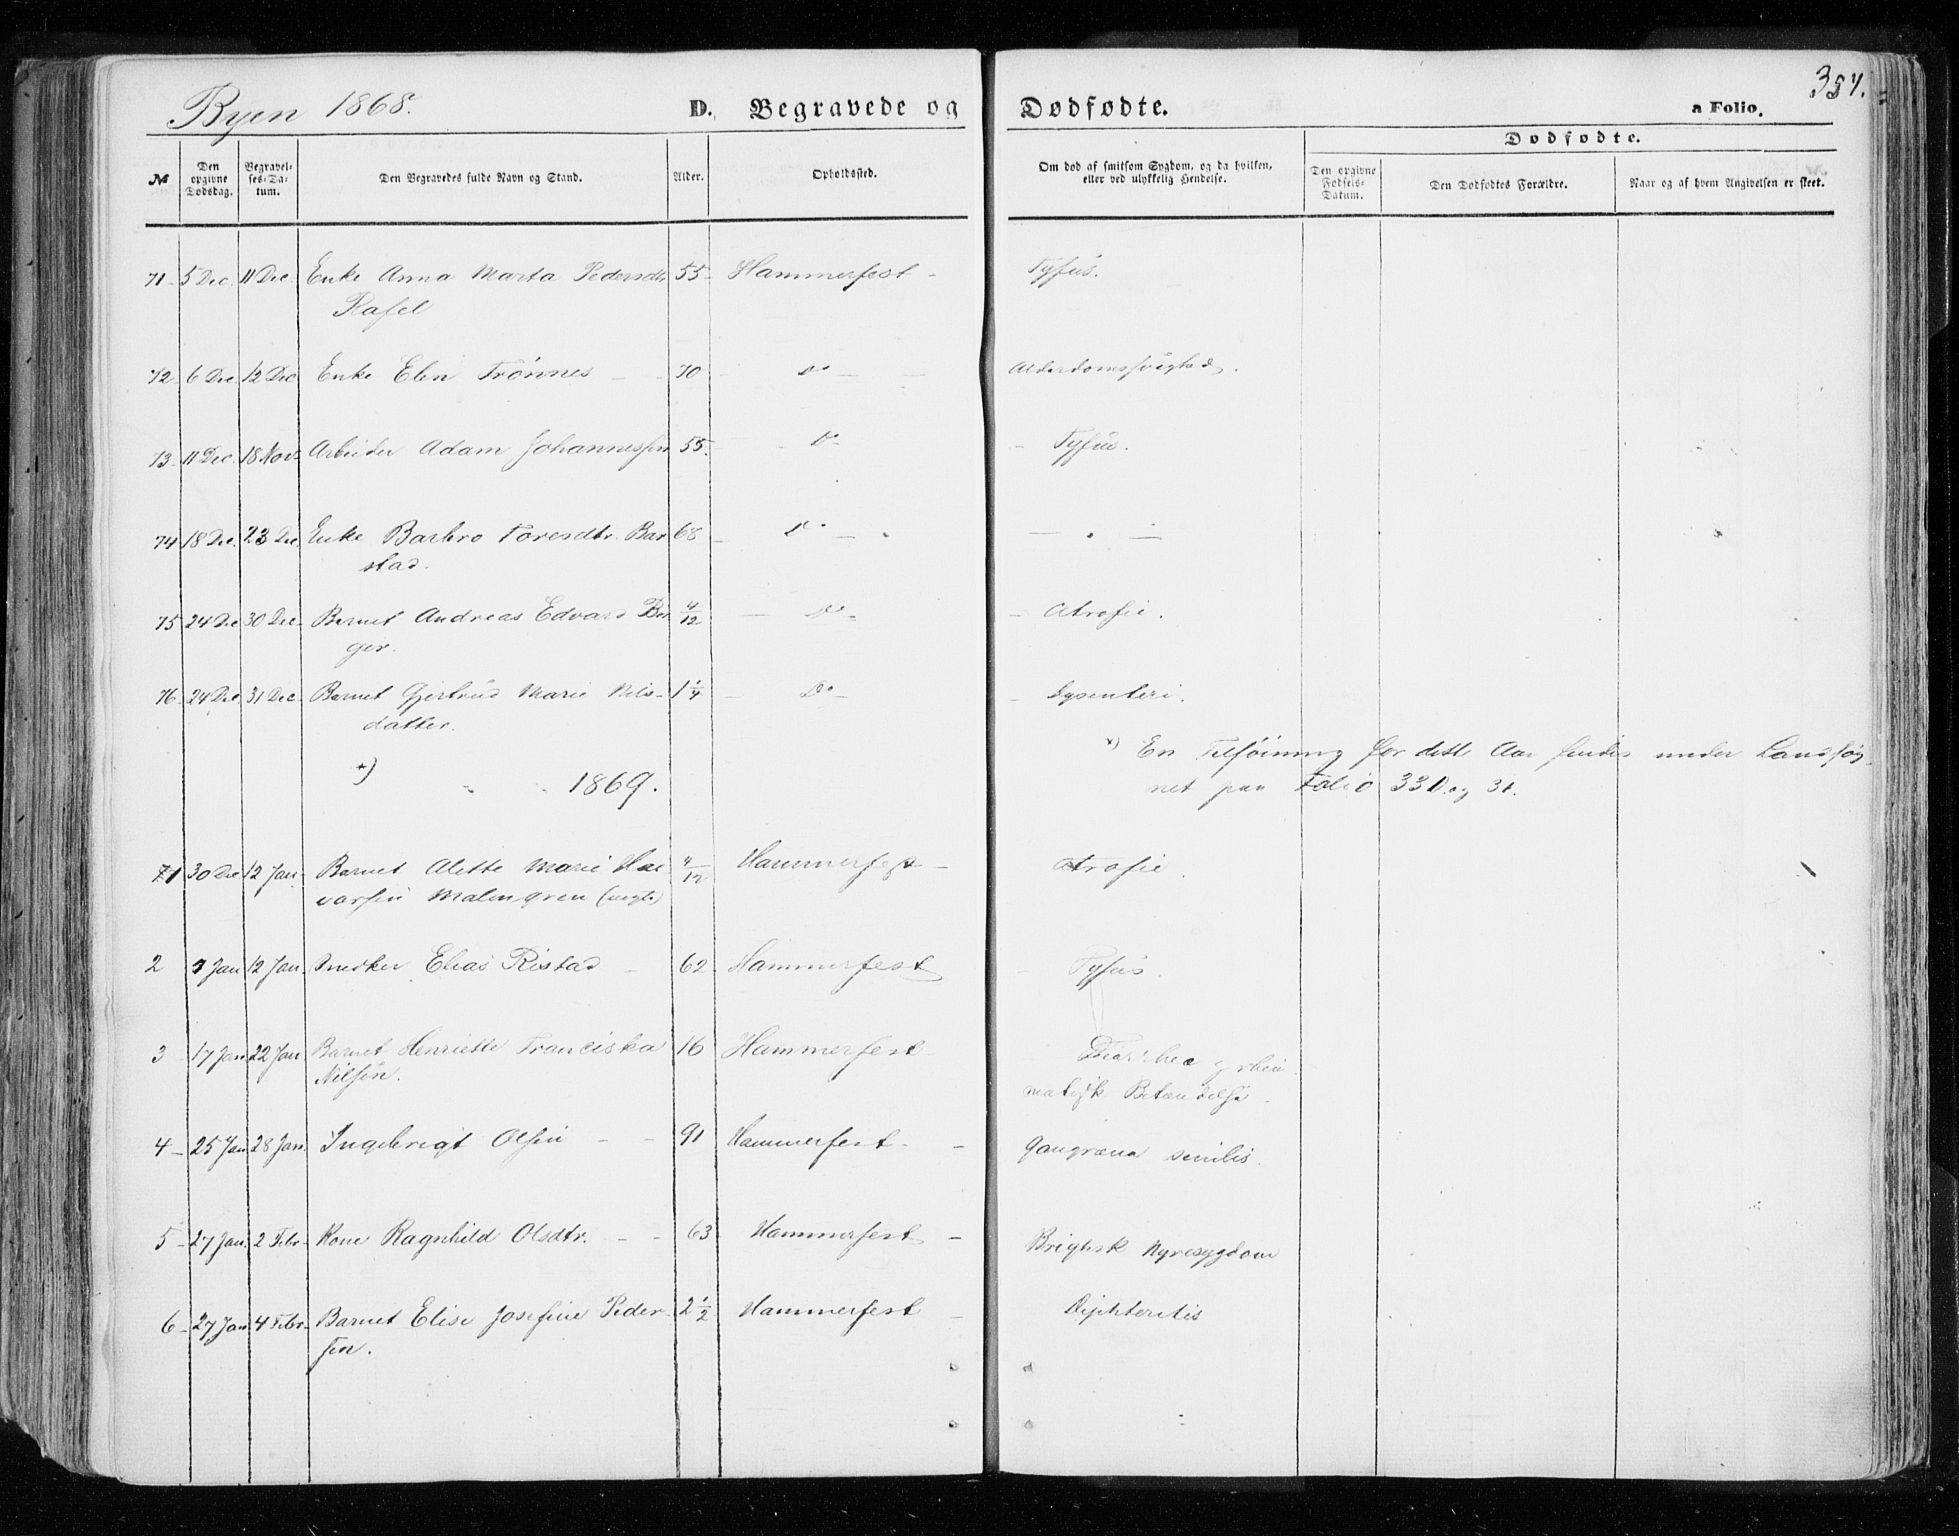 Byen 1868.
D. Begravede og Dødfødte.
354.
a Folio.
№
Den opgivne Dødsdag.
Begravelses-Datum.
Den Begravedes fulde Navn og Stand.
Alder.
Opholdssted.
Om død af smitsom Sygdom, og da hvilken, eller ved ulykkelig Hendelse.
Dødfødte.
Den opgivne Fødsels-Datum.
Den Dødfødtes Forældre.
Naar og af hvem Angivelsen er skeet.
71 - 5 Dec. 11 Dec. Enke Anna Marta Pedersdtr. 55 - Hammerfest - Tyfus.
Rafel
72 - 6 Dec 12 Dec Enke Elen Trønnes - - 70 - Do - - Alderdomssvaghed.
73 - 11 Dec. 18 Nov. Arbeider Adam Johannessen 55. - Do - - Tyfus.
74 18 Dec. 23 Dec. Enke Barbro Toresdtr. Bar 68 - Do - - " -
stad.
75 24 Dec 30 Dec. Barnet Andreas Edvard Ber 4/12 - Do - - Atrofie.
ger.
76 - 24 Dec 31 Dec. Barnet Gjertrud Marie Nils- 1 1/4 - Do - - Dysenteri.
datter.
*) En Tilføining for dette Aar findes under Landsog
net paa Folio 330. og 31.
*)
" " 1869.
1 30 Dec 12 Jan Barnet Alette Marie Hal 4/12 Hammerfest - Atrofie.
varsen Malmgren (uegte)
2 3 Jan 12 Jan. Snedker Elias Ristad - 62 - Hammerfest - Tyfus.
3 - 17 Jan 22 Jan Barnet Henriette Franciska 16 Hammerfest Diarrhee og rheu
Nilsen.
matisk Betændelse.
4 - 25 Jan 28 Jan. Ingebrigt Olsen - - 91 Hammerfest. - Gangræna senilis.
5 - 27 Jan. 2 Febr - Kone Ragnhild Olsdtr. - - 63 Hammerfest - Brightsk Nyresygdom
6 - 27 Jan 4 Febr - Barnet Elise Josefine Peder- 2 1/2 Hammerfest - Diphteritis
sen.